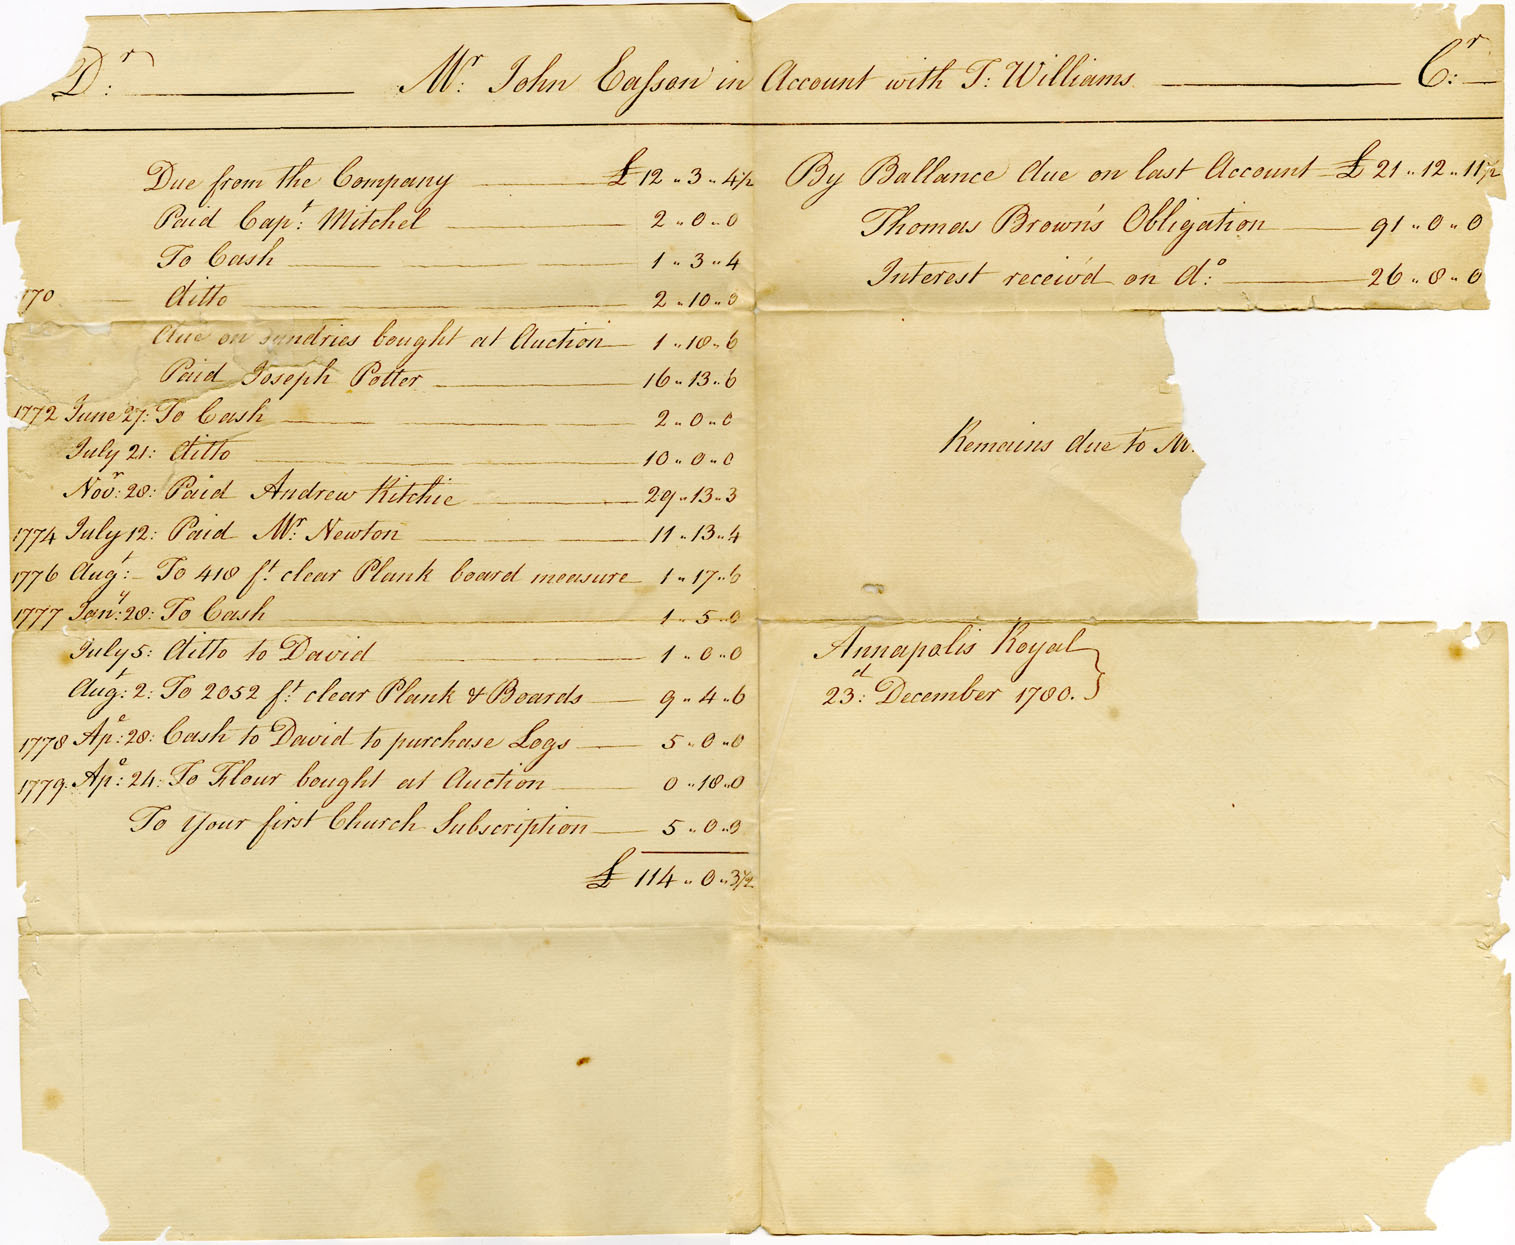 Dr: Mr: John Easson in Account with T: Williams Cr:
Due from the Company £ 12 „ 3 „ 4 1/2
Paid Capt: Mitchel 2 „ 0 „ 0
To Cash 1 „ 3 „ 4
170 ditto 2 „ 10 „ 0
due on sundries bought at Auction 1 „ 18 „ 6
Paid Joseph Potter 16 „ 13 „ 6
1772 June 27: To Cash 2 „ 0 „ 0
July 21: ditto 10 „ 0 „ 0
Novr: 28: Paid Andrew Ritchie 29 „ 13 „ 3
1774 July 12: Paid Mr: Newton 11 „ 13 „ 4
1776 Augt: To 418 ft clear Plank board measure 1 „ 17 „ 6
1777 Jany: 28: To Cash 1 „ 5 „ 0
July 5: ditto to David 1 „ 0 „ 0
Augt: 2: To 2052 ft clear Plank & Boards 9 „ 4 „ 6
1778 Ape: 28: Cash to David to purchase Logs 5 „ 0 „ 0
1779: Ape: 24: To Flour bought at Auction 0 „ 18 „ 0
To Your first Church Subscription 5 „ 0 „ 0
£ 114 „ 0 „ 3 1/2
By Ballance due on last Account £ 21 „ 12 „ 11 1/2
Thomas Brown's Obligation 91 „ 0 „ 0
Interest receiv'd on do: 26 „ 8 „ 0
Remains due to M
Annapolis Royal
23d: December 1780.